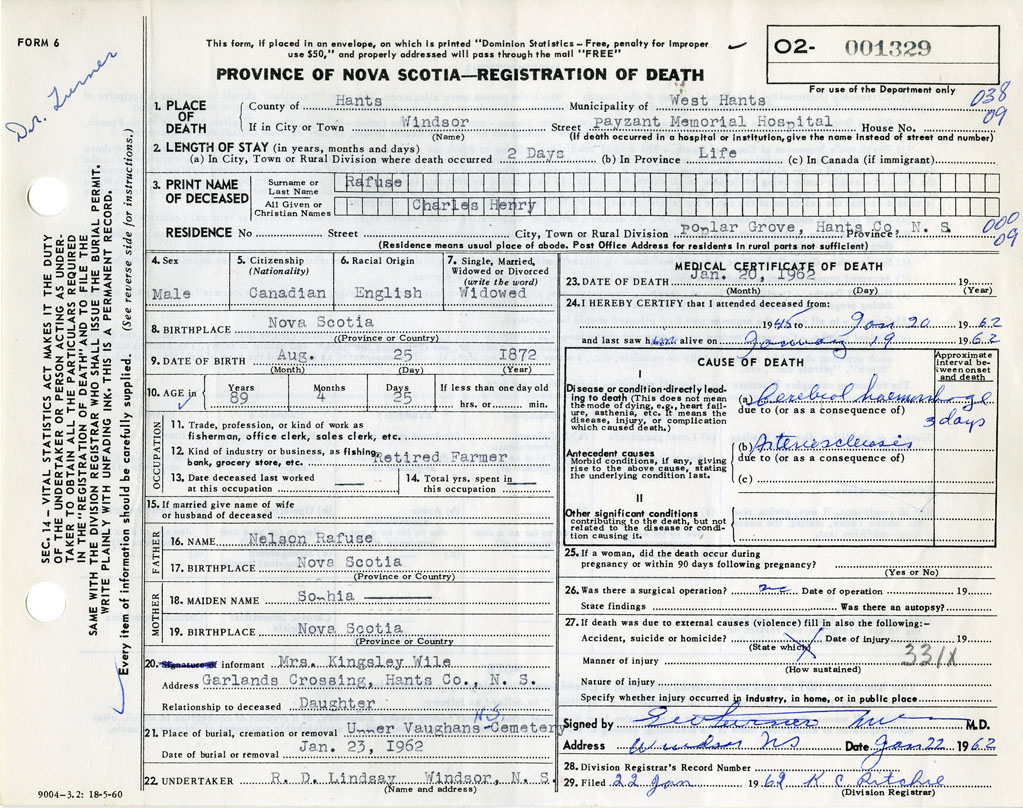 FORM 6
Dr. Turner
This form, if placed in an envelope, on which is printed "Dominion Statistics – Free, penalty for improper
use $50," and properly addressed will pass through the mail "FREE"
02- 001329
For use of the Department only
PROVINCE OF NOVA SCOTIA—REGISTRATION OF DEATH
038
09
1. PLACE OF DEATH
County of Hants Municipality of West Hants
If in City or Town Windsor Street Payzant Memorial Hospital House No.
(Name) (If death occurred in a hospital or institution, give the name instead of street and number)
2. LENGTH OF STAY (in years, months and days)
(a) In City, Town or Rural Division where death occurred 2 Days (b) In Province Life (c) In Canada (if immigrant)
3. PRINT NAME OF DECEASED
Surname or Last Name Rafuse
All Given or Christian Names Charles Henry
RESIDENCE No Street City, Town or Rural Division Poplar Grove, Hants Co, N. S. Province
(Residence means usual place of abode. Post Office Address for residents in rural parts not sufficient)
000
09
4. Sex Male
5. Citizenship (Nationality) Canadian
6. Racial Origin English
7. Single, Married, Widowed or Divorced (write the word) Widowed
8. BIRTHPLACE Nova Scotia
(Province or Country)
9. DATE OF BIRTH Aug. 25 1872
(Month) (Day) (Year)
10. AGE in Years 89 Months 4 Days 25 If less than one day old
hrs. or min.
OCCUPATION
11. Trade, profession, or kind of work as
fisherman, office clerk, sales clerk, etc.
12. Kind of industry or business, as fishing,
bank, grocery store, etc. Retired Farmer
13. Date deceased last worked
at this occupation
14. Total yrs. spent in
this occupation
15. If married give name of wife
or husband of deceased
FATHER
16. NAME Nelson Rafuse
17. BIRTHPLACE Nova Scotia
(Province or Country)
MOTHER
18. MAIDEN NAME Sophia
19. BIRTHPLACE Nova Scotia
(Province or Country
20. Signature of informant Mrs. Kingsley Wile
Address Garlands Crossing, Hants Co., N. S.
Relationship to deceased Daughter
21. Place of burial, cremation or removal Upper Vaughans Cemetery N.S.
Date of burial or removal Jan. 23, 1962
22. UNDERTAKER R. D. Lindsay Windsor, N. S.
(Name and address)
MEDICAL CERTIFICATE OF DEATH
23. DATE OF DEATH Jan. 20, 1962 19
(Month) (Day) (Year)
24. I HEREBY CERTIFY that I attended deceased from:
1945 to Jan 20 1962
and last saw him alive on January 19 1962
CAUSE OF DEATH
Approximate interval between onset and death
I
Disease or condition directly leading to death (This does not mean the mode of dying, e.g., heart failure, asthenia, etc. It means the disease, injury, or complication which caused death.)
(a) Cerebral haemorrhage
due to (or as a consequence of) 3 days
Antecedent causes
Morbid conditions, if any, giving rise to the above cause, stating the underlying condition last.
(b) Arteriosclerosis
due to (or as a consequence of)
(c)
II
Other significant conditions
contributing to the death, but not related to the disease or condition causing it.
25. If a woman, did the death occur during
pregnancy or within 90 days following pregnancy?
(Yes or No)
26. Was there a surgical operation? no Date of operation 19
State findings Was there an autopsy?
27. If death was due to external causes (violence) fill in also the following:–
Accident, suicide or homicide? Date of injury 19
(State which) 331X
Manner of injury
(How sustained)
Nature of injury
Specify whether injury occurred in industry, in home, or in public place
Signed by Geo Turner M.D.
Address Windsor NS Date Jan 22 1962
28. Division Registrar's Record Number
29. Filed 22 Jan 1962 K C Ritchie
(Division Registrar)
SEC. 14 – VITAL STATISTICS ACT MAKES IT THE DUTY
OF THE UNDERTAKER OR PERSON ACTING AS UNDERTAKER TO OBTAIN ALL THE PARTICULARS REQUIRED
IN THE "REGISTRATION OF DEATH" AND TO FILE THE
SAME WITH THE DIVISION REGISTRAR WHO SHALL ISSUE THE BURIAL PERMIT.
WRITE PLAINLY WITH UNFADING INK. THIS IS A PERMANENT RECORD.
Every item of information should be carefully supplied. (See reverse side for instructions.)
9004–3.2: 18-5-60